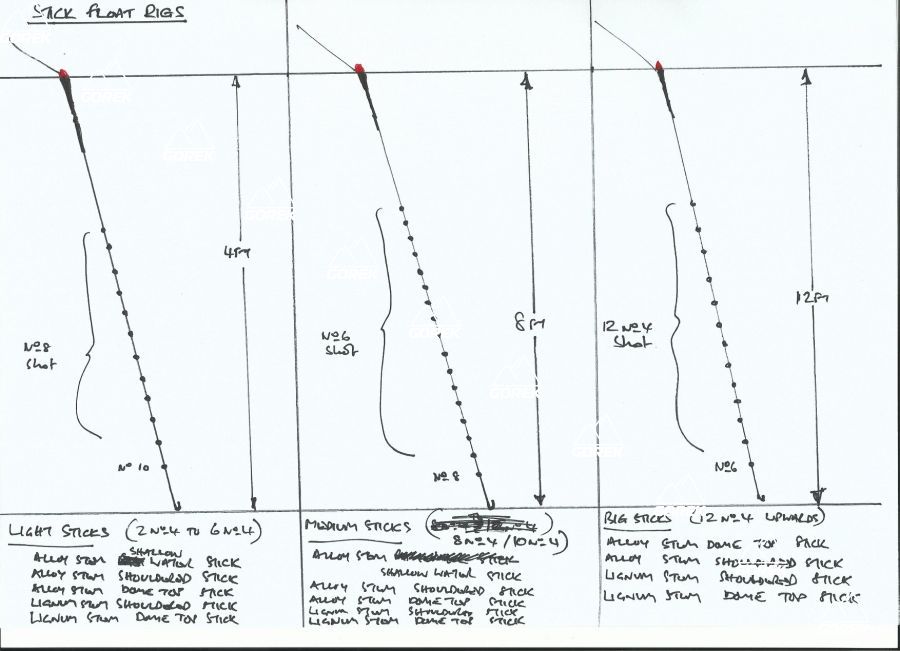 STICK FLOAT RIGS
4ft
No8
shot
No 10
8ft
No6
shot
No 8
12ft
12 No4
Shot
No6
LIGHT STICKS (2 No4 TO 6 No4)
ALLOY STEM SHALLOW WATER STICK
ALLOY STEM SHOULDERED STICK
ALLOY STEM DOME TOP STICK
LIGNUM STEM SHOULDERED STICK
LIGNUM STEM DOME TOP STICK
MEDIUM STICKS (
8No4/10No4)
ALLOY STEM STICK
SHALLOW WATER STICK
ALLOY STEM SHOULDERED STICK
ALLOY STEM DOME TOP STICK
LIGNUM STEM SHOULDERED STICK
LIGNUM STEM DOME TOP STICK
BIG STICKS (12 No4 UPWARDS)
ALLOY STEM DOME TOP STICK
ALLOY STEM SHOULDERED STICK
LIGNUM STEM SHOULDERED STICK
LIGNUM STEM DOME TOP STICK
GOREK
GOREK
GOREK
GOREK
GOREK
GOREK
GOREK
GOREK